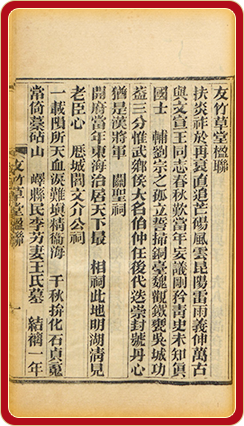 友竹草堂楹聯
扶炎祚於再衰直追芒碭風雲昆陽雷雨義伸萬古
與文宣王同志春秋歎當年妄議剛矜靑史未知眞
國士　輔劉宗之孤立薔掃銅臺魏觀鐵甕吳城功
蓋三分惟武鄉侯大名伯仲任後代迭崇封號丹心
猶是漢將軍　關聖祠
開府當年東海治居天下最　相祠此地明湖淸見
老臣心　厯城閻文介公祠
一載閱所天血淚難塡精衞海　千秋拚化石貞魂
常倚墓砧山　嶧縣民李芳妻王氏墓　結褵一年
友竹草堂楹聯
一